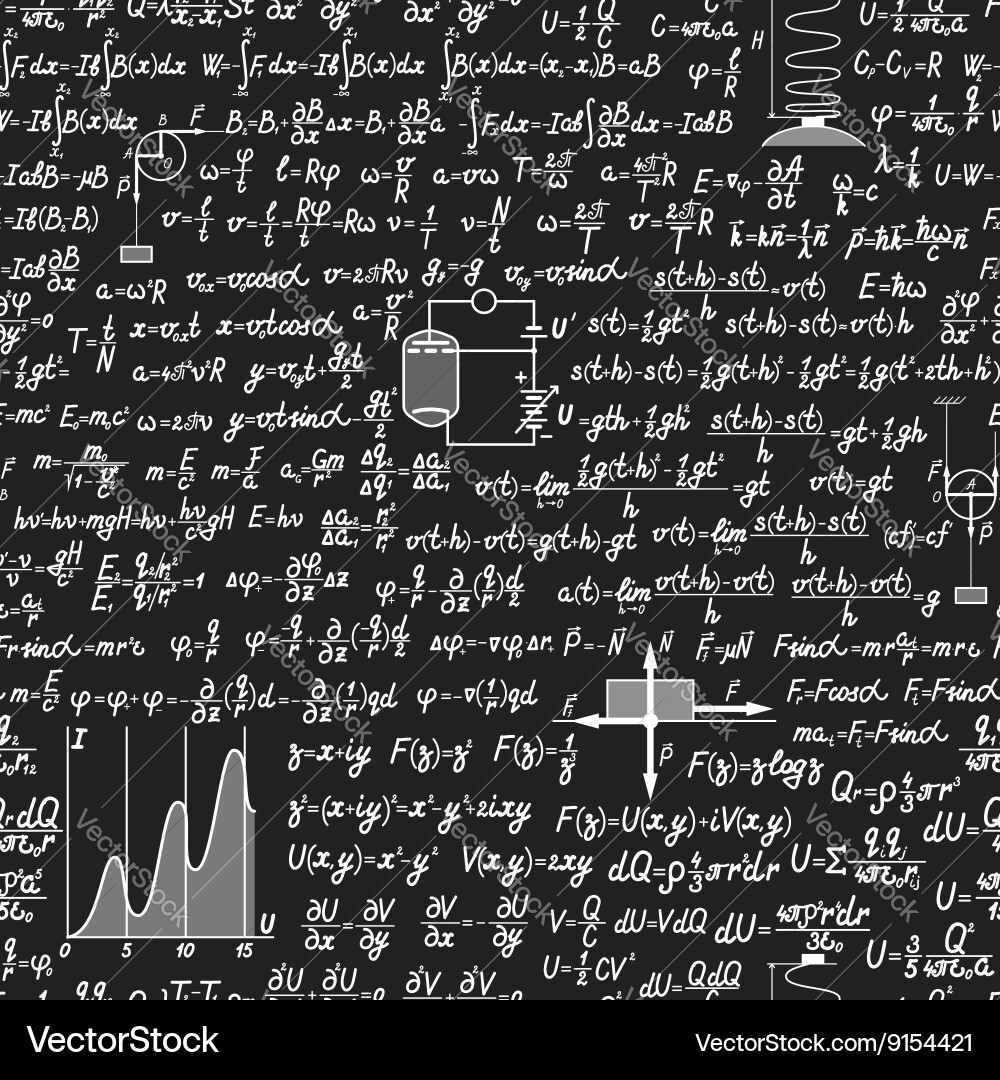 U=1/2 Q²/C
W=-Ib∫B(x)dx W=-∫F₁dx=-Ib∫B(x)dx ∫B(x)dx=(x₂-x₁)B=aB φ=l/R Cp-Cv=R
H
B₂=B₁+∂B/∂x Δx=B₁+∂B/∂x a ∫Fdx=-Iab∫∂B/∂x dx=-IabB φ=1/4πε₀·q/r
A B O F⃗ P⃗
-IabB=-μB ω=φ/t l=Rφ ω=v/R a=vω T=2π/ω a=4π²/T² R E=-∇φ-∂A/∂t ω/k=c λ=1/k U=W=-
=Ib(B₂-B₁) v=l/t v=l/t=Rφ/t=Rω ν=1/T ν=N/t ω=2π/T v=2π/T R k⃗=kn⃗=1/λ n⃗ p⃗=ħk⃗=ħω/c n⃗
=Iab ∂B/∂x a=ω²R v₀ₓ=v₀cosα v=2πRν gᵧ=-g v₀ᵧ=v₀sinα s(t+h)-s(t)/h≈v(t) E=ħω
∂²φ/∂y²=0 T=t/N x=v₀ₓt x=v₀tcosα a=v²/R U' s(t)=1/2gt² s(t+h)-s(t)≈v(t)·h
-1/2gt²= a=4π²ν²R y=v₀ᵧt+gᵧt/2 s(t+h)-s(t)=1/2g(t+h)²-1/2gt²=1/2g(t²+2th+h²)
E=mc² E₀=m₀c² ω=2πν y=v₀tsinα-gt²/2 + − U =gth+1/2gh² s(t+h)-s(t)/h=gt+1/2gh
m=m₀/√1-v²/c² m=E/c² m=F/a a_G=Gm/r² Δq₂/Δq₁=Δa₂/Δa₁ v(t)=lim h→0 1/2g(t+h)²-1/2gt²/h=gt v(t)=gt
F⃗ O A P⃗
hν'=hν+mgH=hν+hν/c²gH E=hν Δa₂/Δa₁=r₂²/r₁² v(t+h)-v(t)=g(t+h)-gt v(t)=lim h→0 s(t+h)-s(t)/h (cf)'=cf'
ν'-ν/ν=gH/c² E₂/E₁=q₂/r₂²/q₁/r₁²=1 Δφ₊=-∂φ₀/∂z Δz φ₊=q/r-∂/∂z(q/r)d/2 a(t)=lim h→0 v(t+h)-v(t)/h v(t+h)-v(t)/h=g
ε=aₜ/r
Frsinα=mr²ε φ₀=q/r φ₋=-q/r+∂/∂z(-q/r)d/2 Δφ₊=-∇φ₀Δr₊ P⃗=-N⃗ N⃗ F⃗f=μN⃗ Fsinα=m r aₜ/r=mrε
m=E/c² φ=φ₊+φ₋=-∂/∂z(q/r)d=-∂/∂z(1/r)qd φ=-∇(1/r)qd F⃗f F⃗ P⃗ Fr=Fcosα Fₜ=Fsinα
maₜ=Fₜ=Fsinα
I z=x+iy F(z)=z² F(z)=1/z³ F(z)=zlogz Qr=ρ4/3πr³
z²=(x+iy)²=x²-y²+2ixy F(z)=U(x,y)+iV(x,y)
U(x,y)=x²-y² V(x,y)=2xy dQ=ρ4/3πr²dr U=Σ qᵢqⱼ/4πε₀rᵢⱼ
∂U/∂x=∂V/∂y ∂V/∂x=-∂U/∂y V=Q/C dU=VdQ dU=4πρ²r⁴dr/3ε₀
0 5 10 15 U
q/r=φ₀ U=1/2CV² dU=QdQ/C U=3/5 Q²/4πε₀a
VectorStock VectorStock.com/9154421